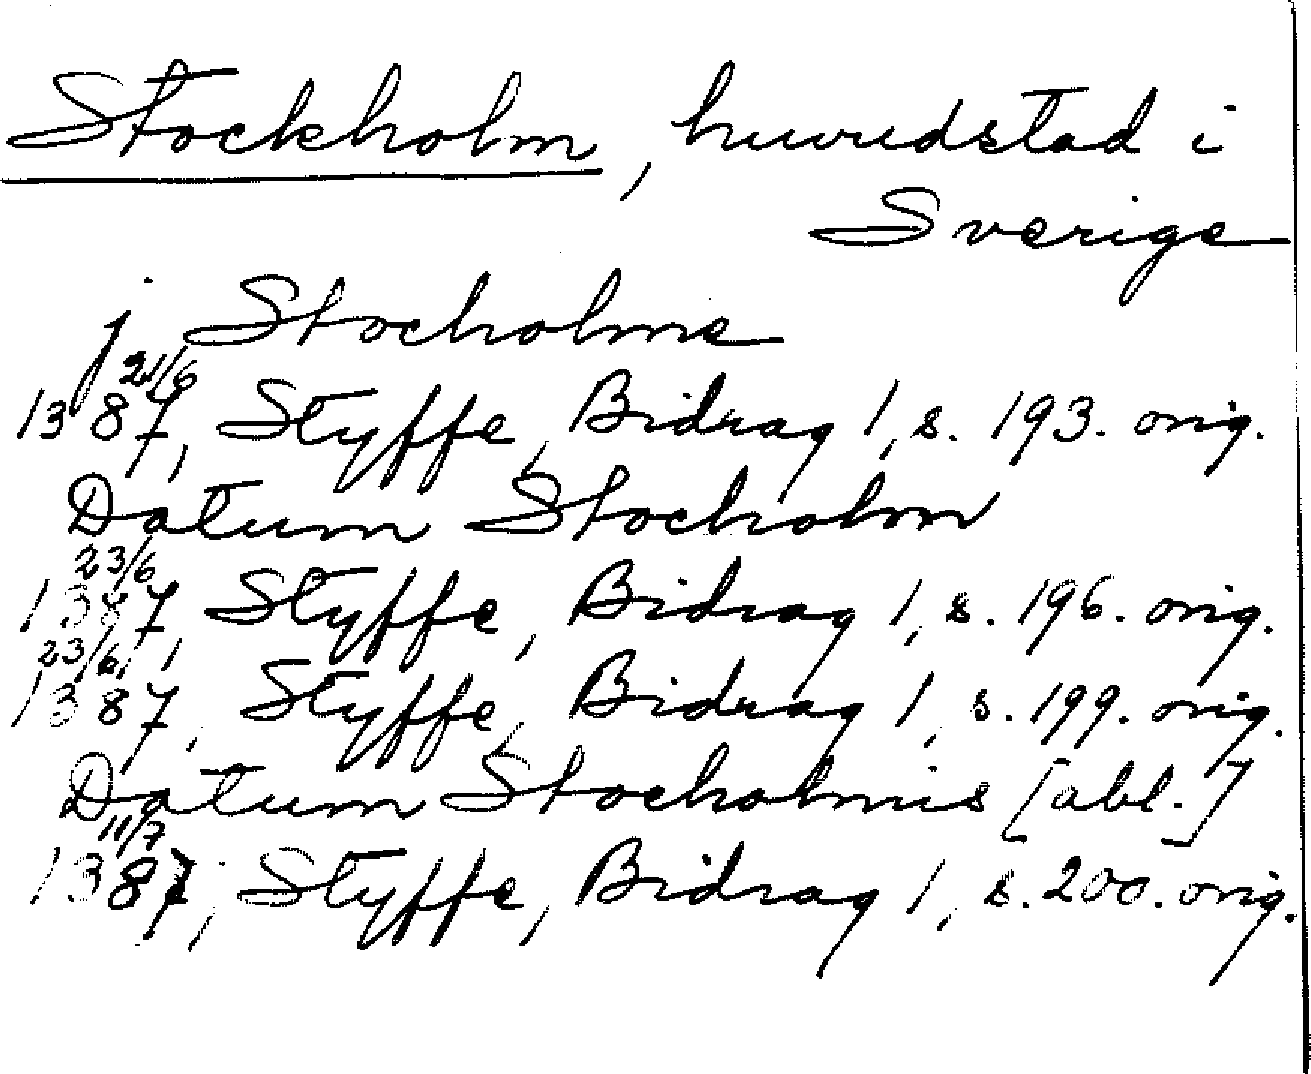 Stockholm, huvudstad i
Sverige
j Stocholme
21/6
1387, Styffe, Bidrag 1, s. 193. orig.
Datum Stocholm
23/6
1387, Styffe, Bidrag 1, s. 196. orig.
23/6
1387, Styffe, Bidrag 1, s. 199. orig.
Datum Stocholmis [abl.]
11/7
1387, Styffe, Bidrag 1, s. 200. orig.